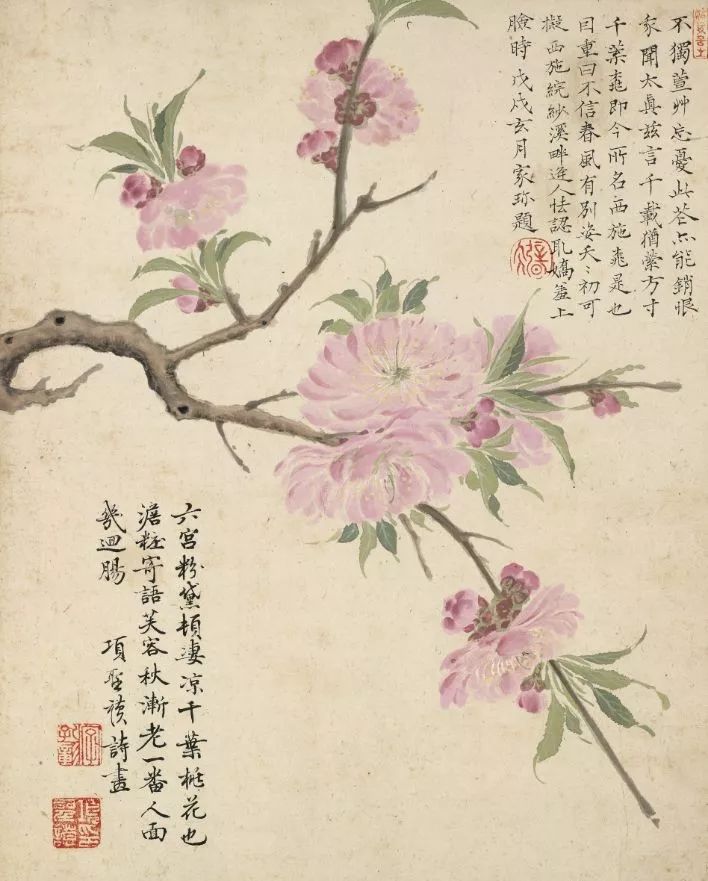 不獨萱艸忘憂此花亦能銷恨
家聞太真茲言千載猶縈方寸
千葉桃即今所名西施桃是也
曰重曰不信春風有別姿夭〻初可
擬西施浣紗溪畔逢人怯認取嬌羞上
臉時戊戌玄月家珍題
六宮粉黛頓淒凉千葉桃花也
澹粧寄語芙容秋漸老一番人面
幾迴腸 項聖謨詩畫